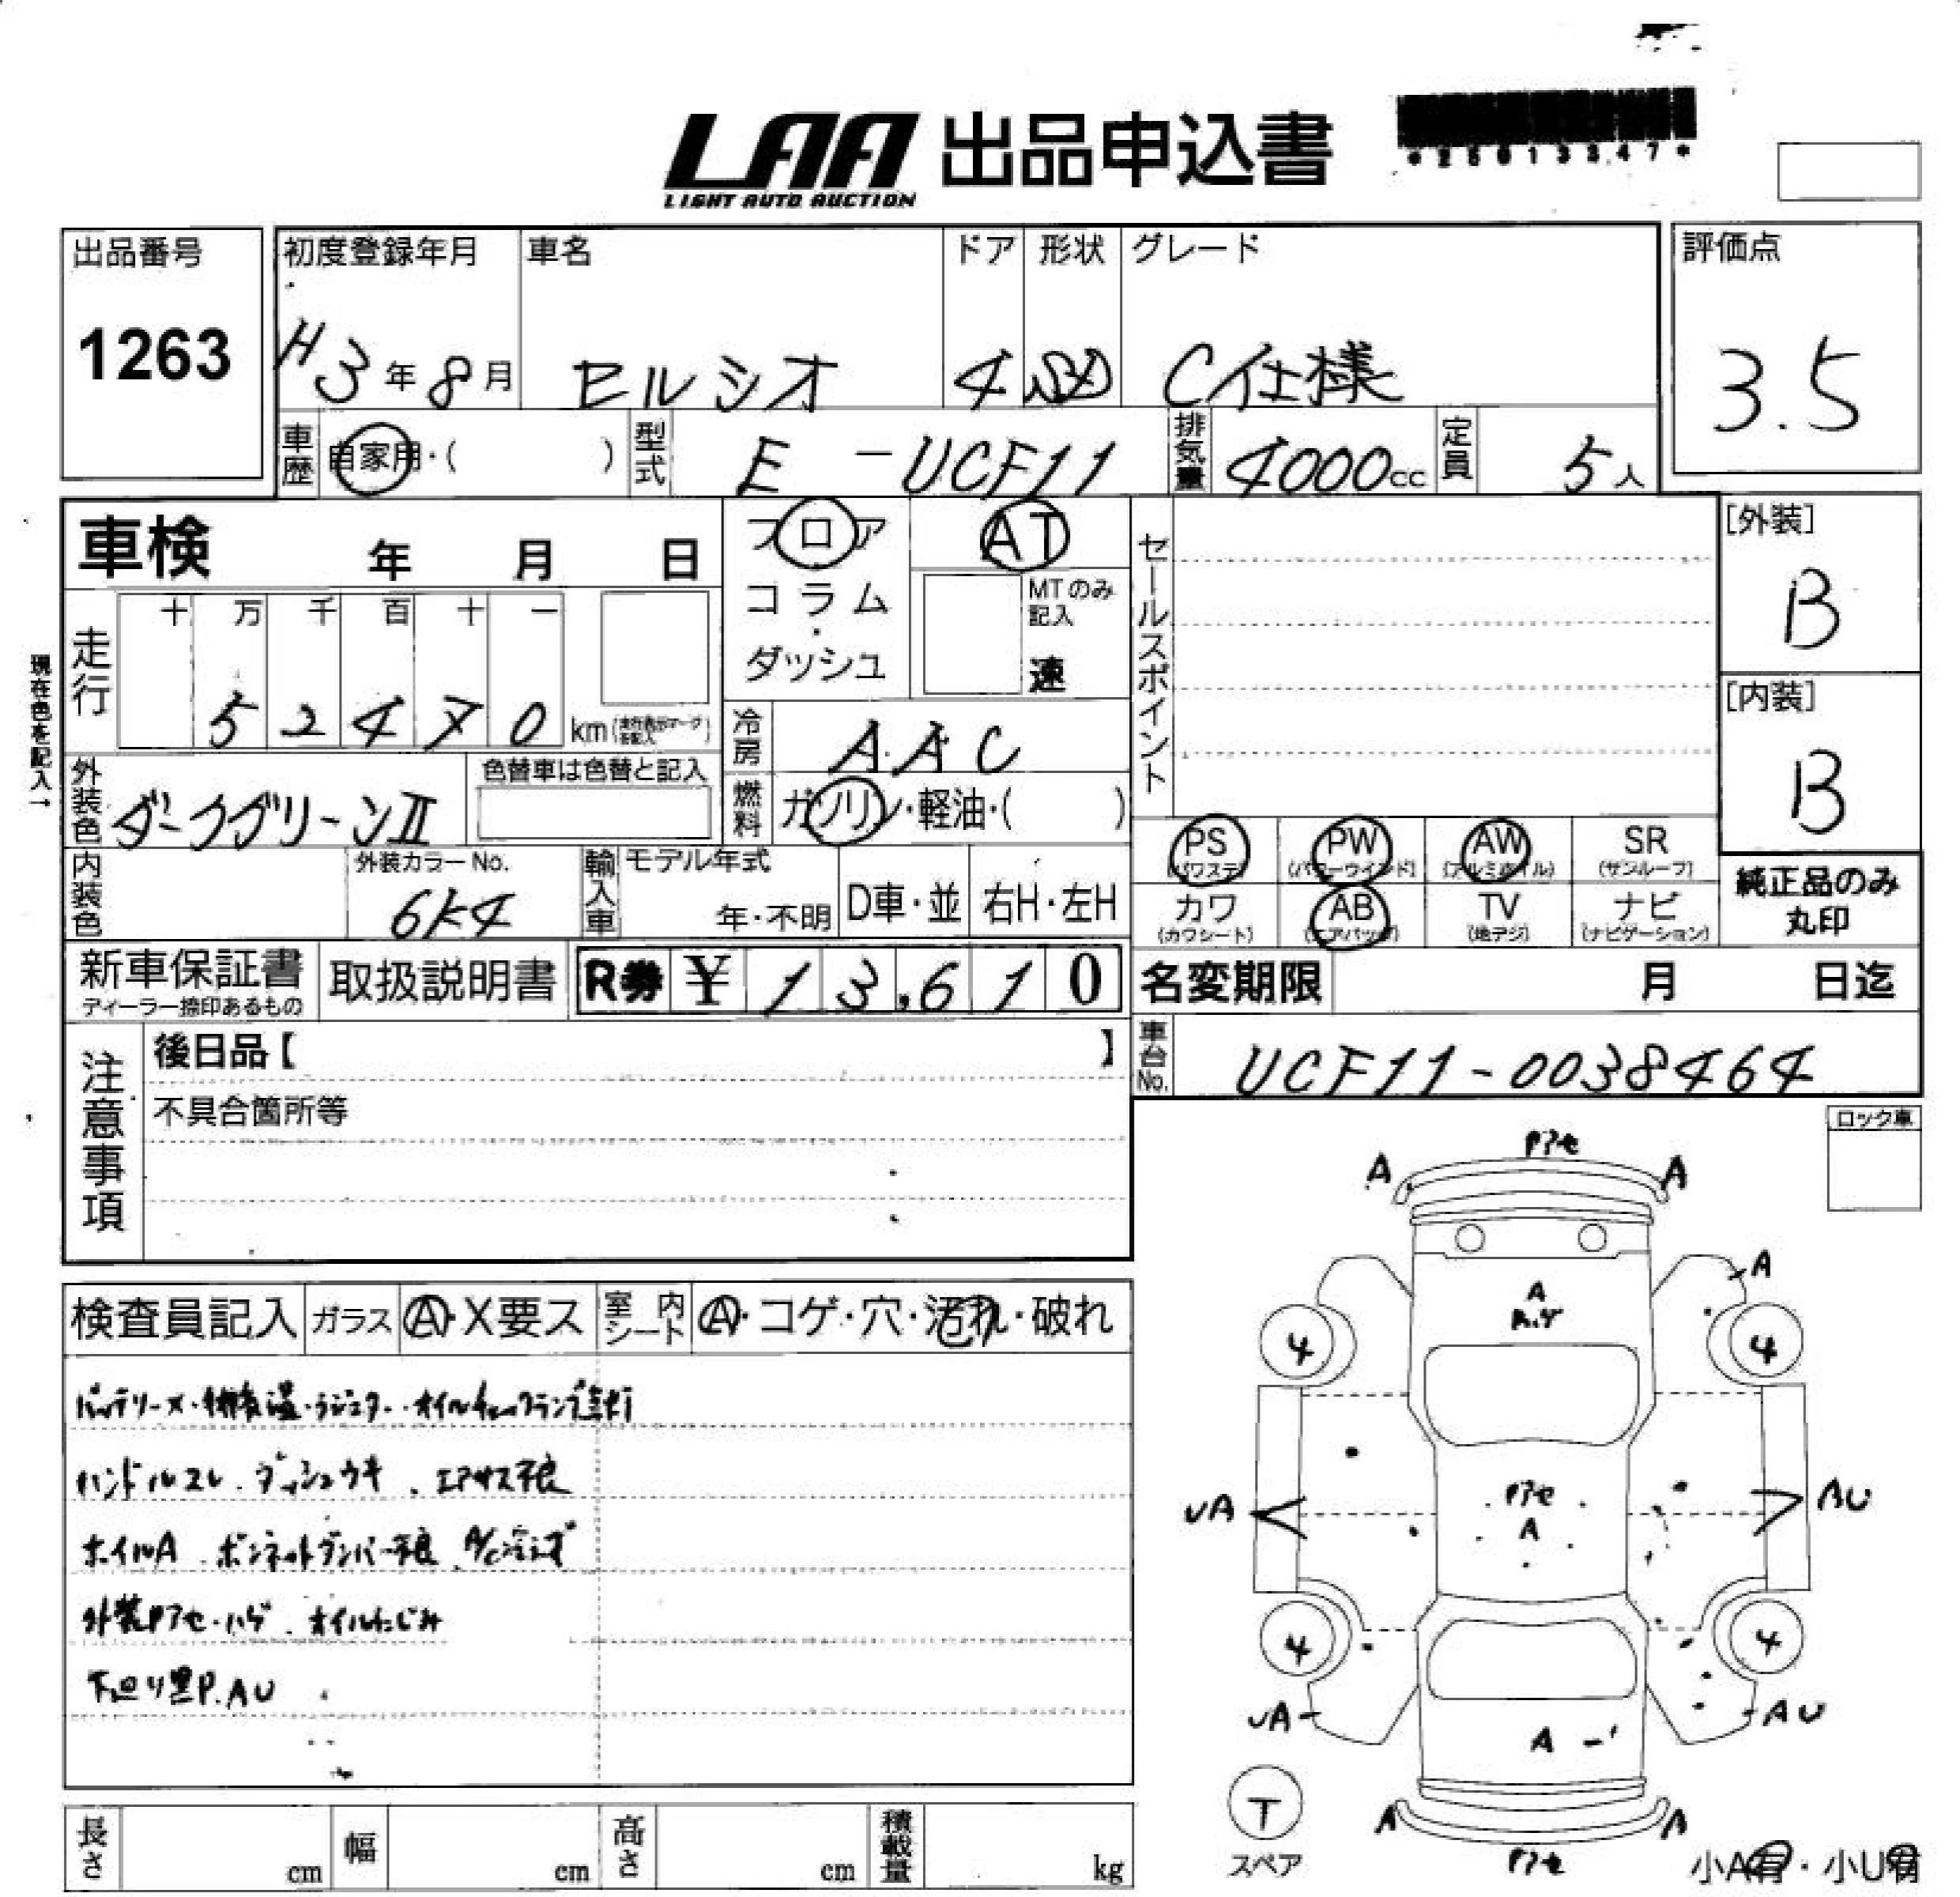 LAA 出品申込書
LIGHT AUTO AUCTION
出品番号
1263
初度登録年月 車名 ドア 形状 グレード
H3年8月 セルシオ 4 SD C仕様
評価点
3.5
車歴 自家用・( ) 型式 E-UCF11 排気量 4000cc 定員 5人
車検 年 月 日
フロア
コラム
・
ダッシュ
AT
MTのみ記入
速
セールスポイント
[外装]
B
[内装]
B
現在色を記入→
走行 十 万 千 百 十 一
5 2 4 7 0 km
冷房 AAC
外装色 ダークグリーンII
色替車は色替と記入
燃料 ガソリン・軽油・( )
内装色
外装カラーNo.
6K4
輸入車 モデル年式
年・不明 D車・並 右H・左H
PS (パワステ) PW (パワーウインド) AW (アルミホイル) SR (サンルーフ)
カワ (カワシート) AB (エアバッグ) TV (地デジ) ナビ (ナビゲーション)
純正品のみ
丸印
新車保証書
ディーラー捺印あるもの
取扱説明書 R券 ¥ 13,610
名変期限 月 日迄
車台No. UCF11-0038464
注意事項
後日品【 】
不具合箇所等
ロック車
検査員記入 ガラス A・X要ス 室内シート A・コゲ・穴・汚れ・破れ
バッテリーX・排気温・ラジエター・オイルチェックランプ点灯
ハンドルスレ.ダッシュウキ.エアサス不良
ホイルA.ボンネットダンパー不良.A/C冷えず
外装Pアセ・ハゲ.オイルにじみ
下廻り黒P.AU
Pアセ
A A
A
A
4 4
UA AU
Pアセ
A
4 4
UA AU
A
T
スペア
A A
Pアセ
小A有・小U有
長さ cm 幅 cm 高さ cm 積載量 kg